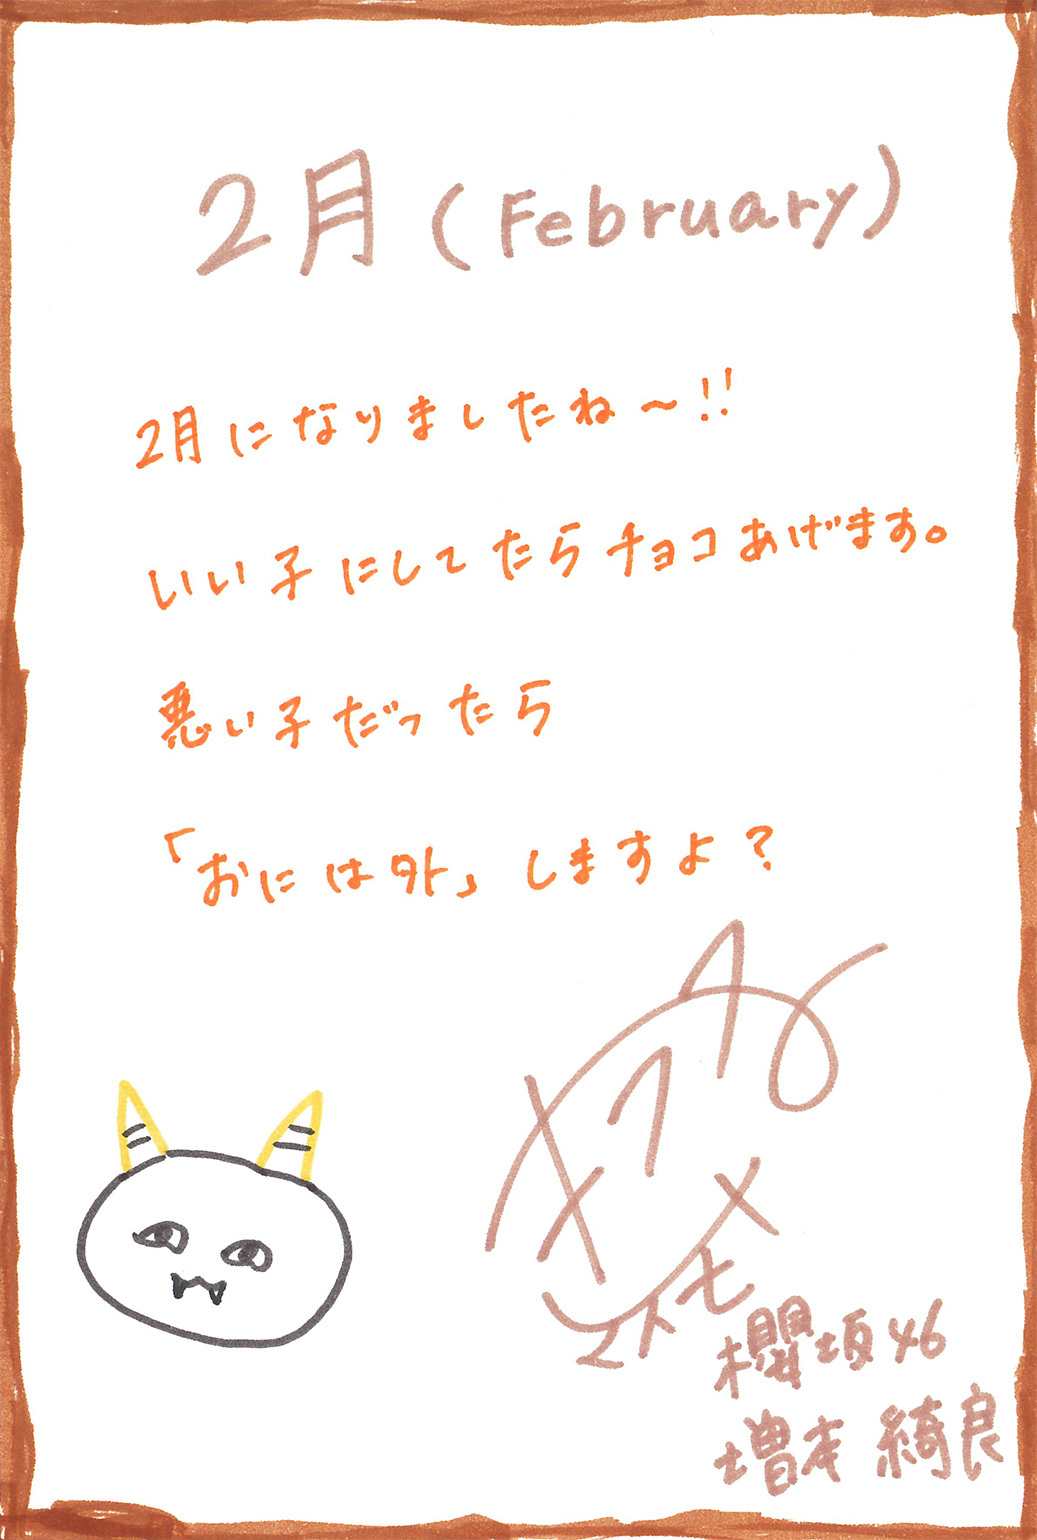 2月(February)
2月になりましたね～!!
いい子にしてたらチョコあげます。
悪い子だったら
「おには外」しますよ?
櫻坂46
増本綺良